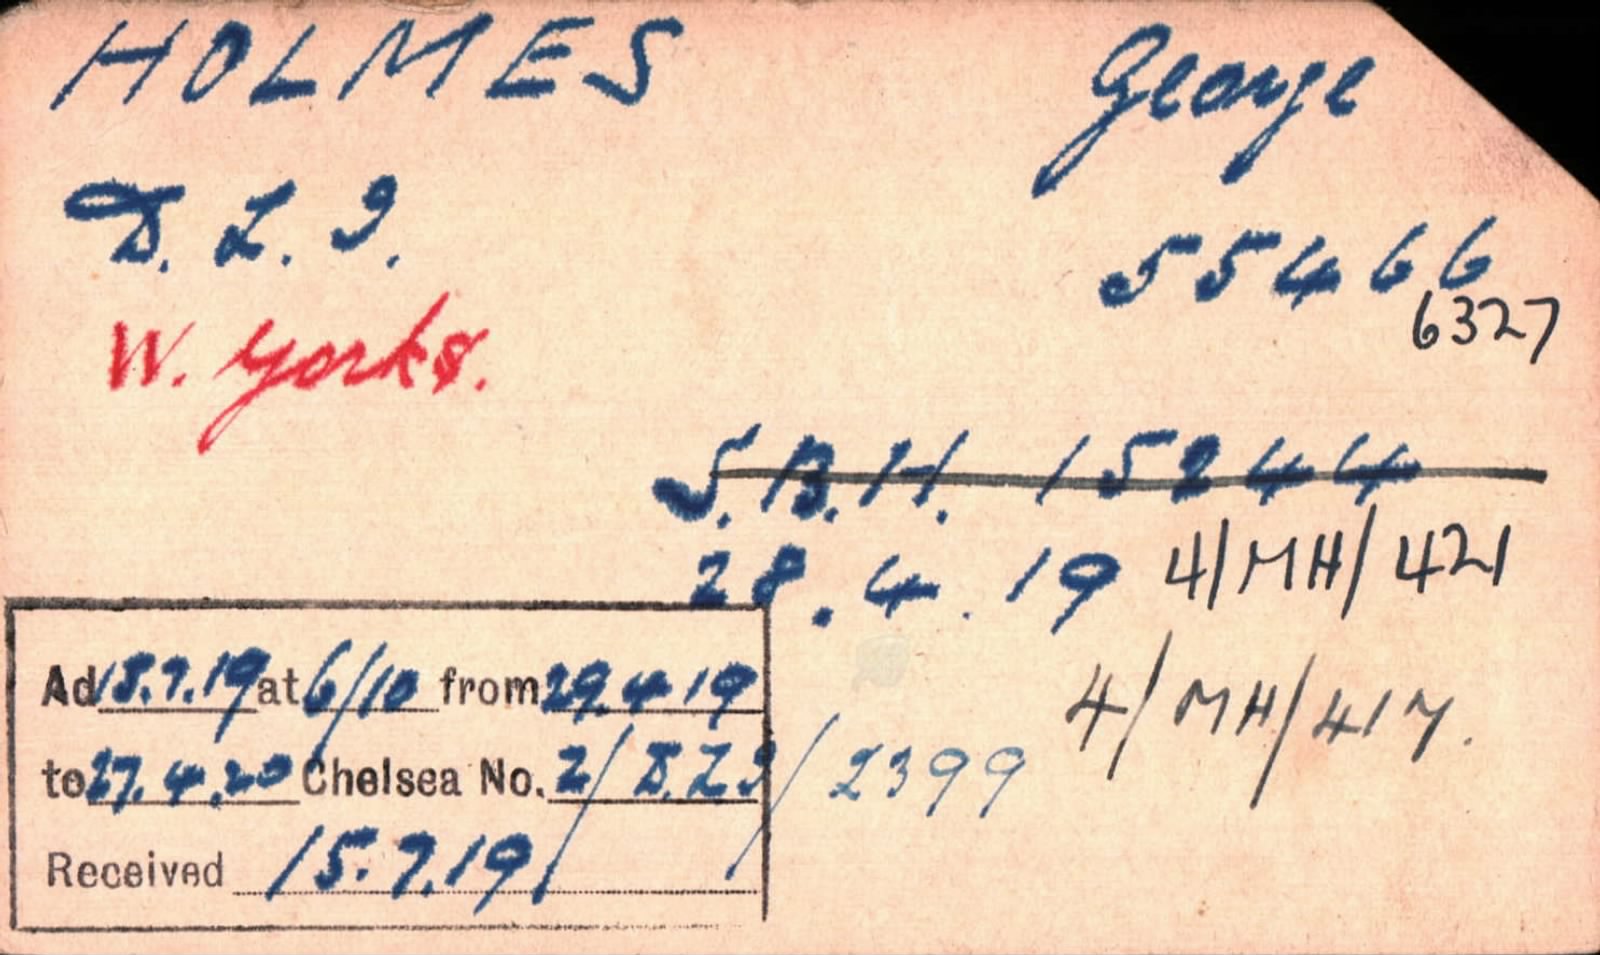 HOLMES George
D. L. I.
55466
6327
W. Yorks.
S.B.H. 15244
28.4.19 4/MH/421
Ad 15.7.19 at 6/10 from 29.4.19
4/MH/417.
to 27.4.20 Chelsea No. 2/D.L.I/2399
Received 15.7.19